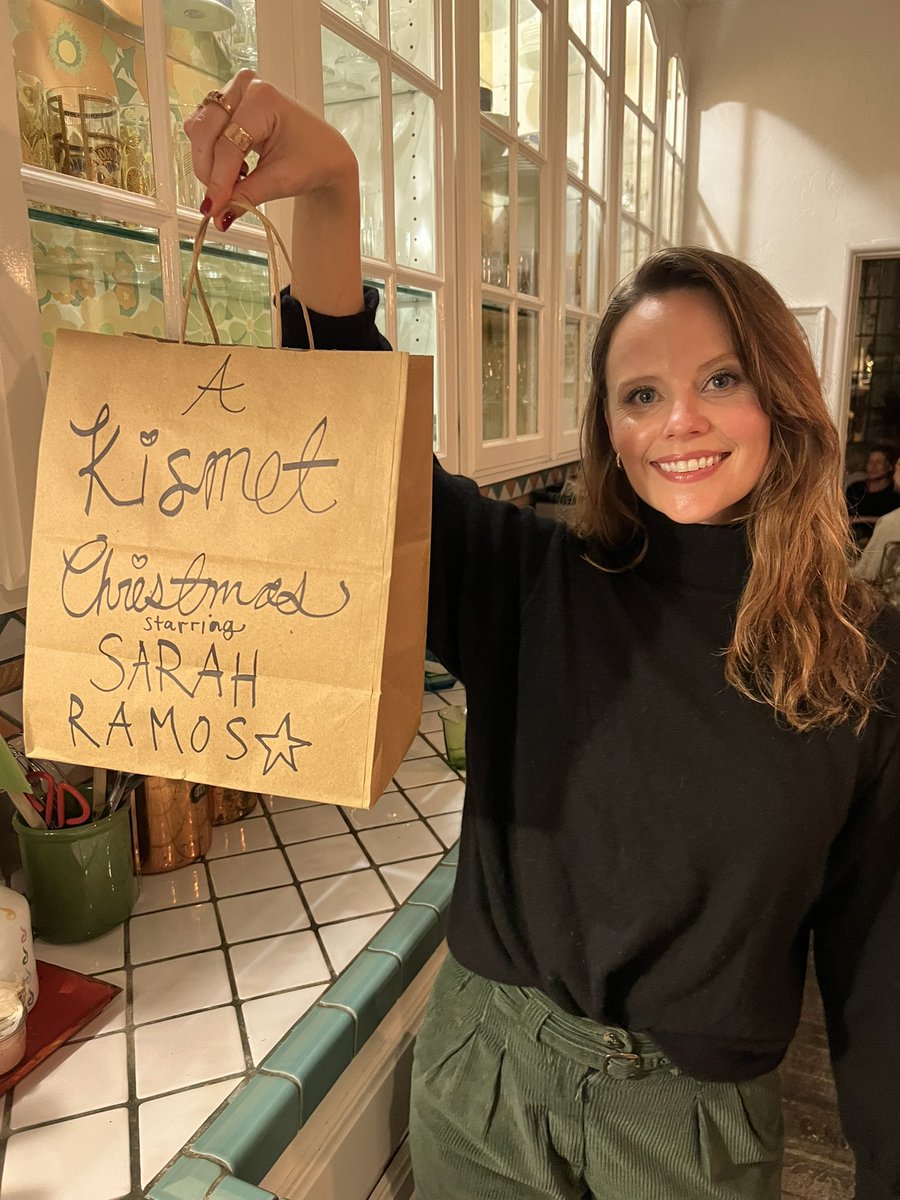 A
Kismet
Christmas
starring
SARAH
RAMOS